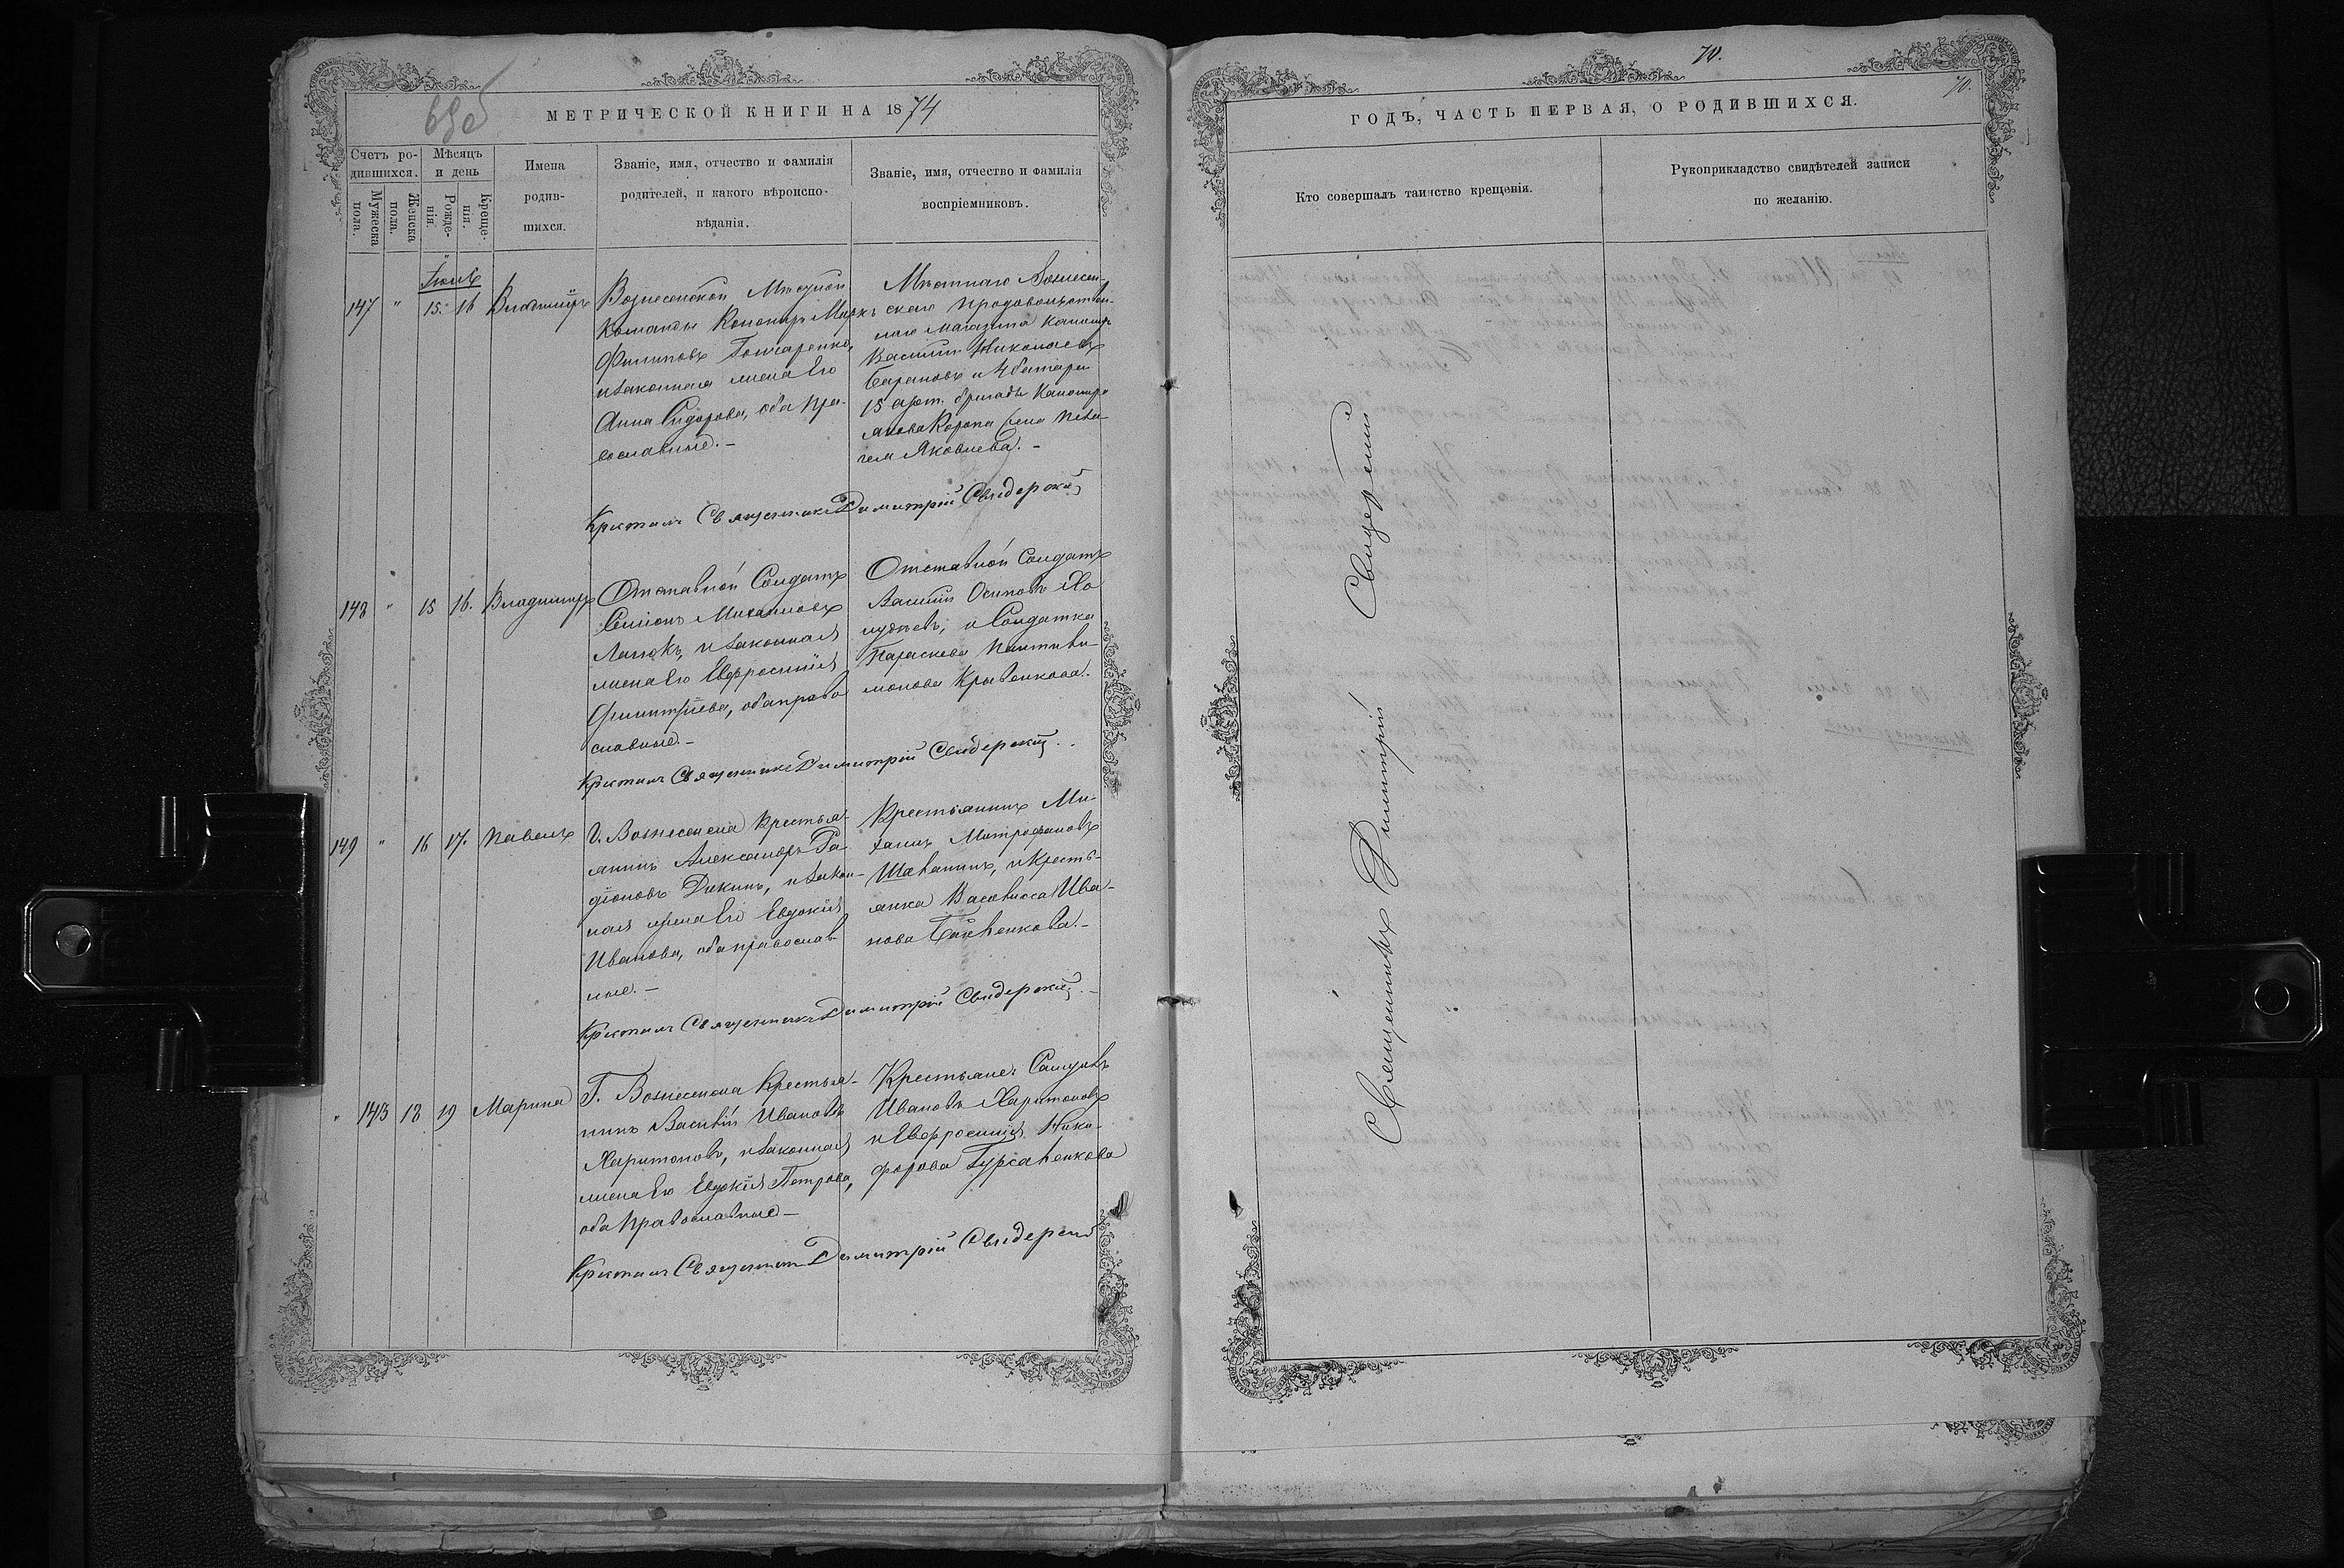 69об
МЕТРИЧЕСКОЙ КНИГИ НА 1874
Счетъ ро-
дившихся.
Мужеска
пола.
Женска
пола.
Мѣсяцъ
и день
Рожде-
нія.
Креще-
нія.
Имена
родив-
шихся.
Званіе, имя, отчество и фамилія
родителей, и какого вѣроиспо-
вѣданія.
Званіе, имя, отчество и фамилія
воспріемниковъ.
Іюль
147 " 15. 16 Владиміръ
Вознесенской Мѣстной
Команды Кононир Маркъ
Филиповъ Гончаренко,
и законная жена его
Анна Сидорова, оба пра-
вославные.-
Мѣстнаго Вознесен-
скаго продовольствен-
наго магазина канонир
Василій Николаевъ
Барановъ и 4 батареи
15 арт. бригады Канонира
Якова Корота жена Пела-
гея Яковлева.-
Крестилъ Священникъ Димитрій Свидерскій
148 " 15 16. Владимиръ
Отставной Солдатъ
Симіонъ Михаиловъ
и законная
жена его Евфросинія
Димитріева, оба право
славные.-
Отставной Солдатъ
Василій Осиповъ Хо
и Солдатка
Параскева Пантели
монова Кривенкова.
Крестилъ Священникъ Димитрій Свидерскій.
149 " 16 17. Павелъ
Г. Вознесенска Крестья-
нинъ Александръ Ра
діоновъ Дикинъ, и закон-
ная жена его Евдокія
Иванова, оба православ
ные.-
Крестьянинъ Ми-
хаилъ Митрофановъ
и Кресть-
янка Василиса Ива-
нова
Крестилъ Священникъ Димитрій Свидерскій.-
" 143 18 19 Марина
Г. Вознесенска Крестья-
нинъ Василій Ивановъ
Харитоновъ, и законная
жена его Евдокія Петрова,
оба православные-
Крестьяне:
Ивановъ Харитоновъ
и Евфросинія Ники-
форова
Крестилъ Священникъ Димитрій Свидерскій
70.
70.
ГОДЪ, ЧАСТЬ ПЕРВАЯ, О РОДИВШИХСЯ.
Кто совершалъ таинство крещенія.
Рукоприкладство свидѣтелей записи
по желанію.
Священникъ Димитрій Свидерскій